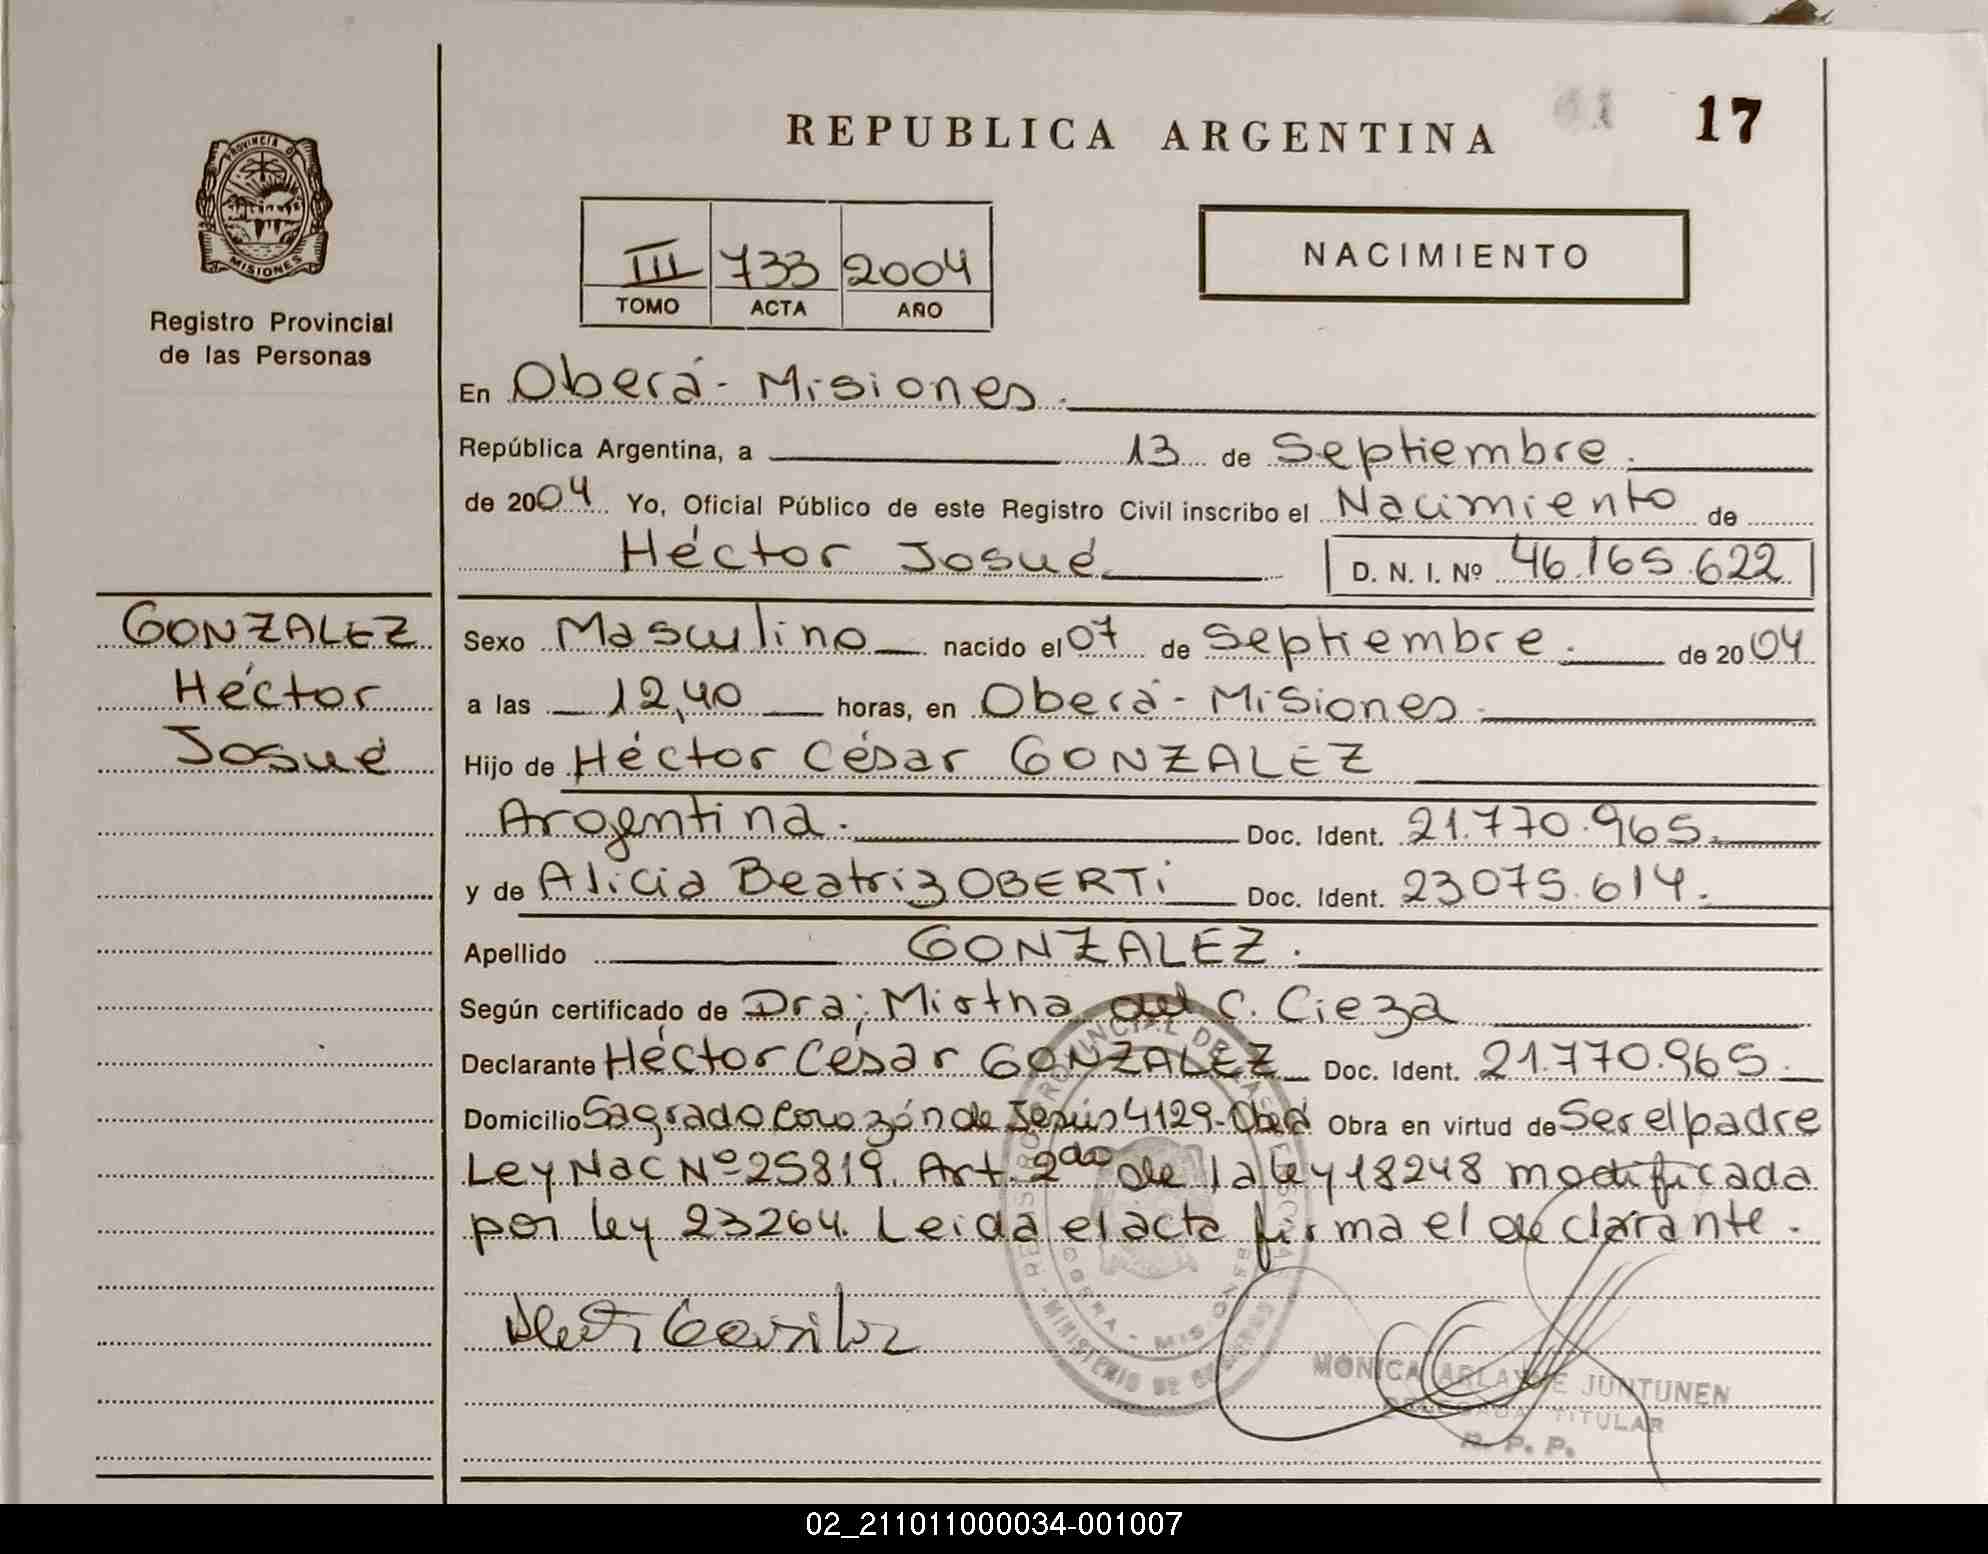 REPUBLICA ARGENTINA
17
PROVINCIA DE
MISIONES
Registro Provincial
de las Personas
III 733 2004
TOMO ACTA AÑO
NACIMIENTO
En Oberá - Misiones.
República Argentina, a 13 de Septiembre.
de 2004 Yo, Oficial Público de este Registro Civil inscribo el Nacimiento de
Héctor Josué D. N. I. Nº 46.165.622
GONZALEZ
Héctor
Josué
Sexo Masculino nacido el 07 de Septiembre. de 2004
a las 12,40 horas, en Oberá - Misiones.
Hijo de Héctor César GONZALEZ
Argentina. Doc. Ident. 21.770.965.
y de Alicia Beatriz OBERTi Doc. Ident. 23075.614.
Apellido GONZALEZ.
Según certificado de Dra; Mirtha del C. Cieza
Declarante Héctor César GONZALEZ Doc. Ident. 21.770.965.
Domicilio Sagrado Corazón de Jesús 4129-Oberá Obra en virtud de Ser el padre
Ley Nac Nº 25819. Art. 2do de la ley 18248 modificada
por ley 23264. Leida el acta firma el declarante.
MONICA ARLAYNE JUNTUNEN
DELEGADA TITULAR
R. P. P.
02_211011000034-001007